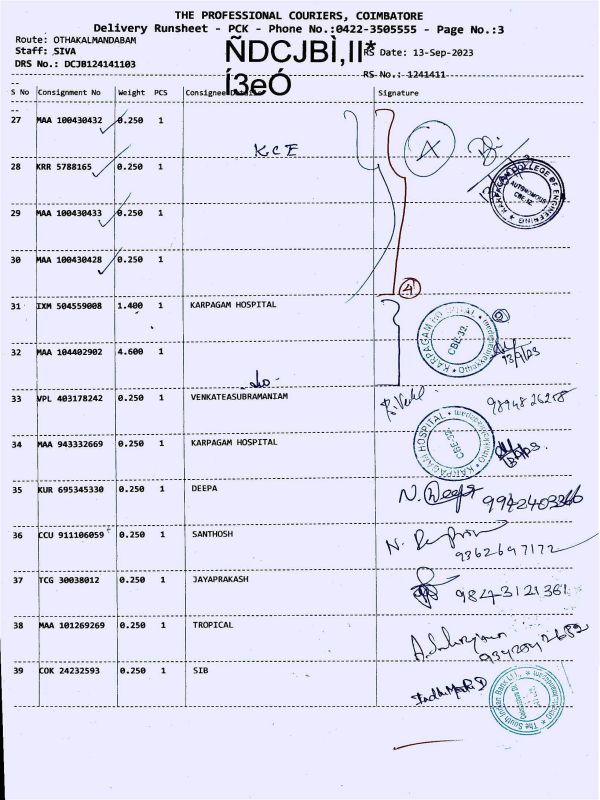 THE PROFESSIONAL COURIERS, COIMBATORE
Delivery Runsheet - PCK - Phone No.:0422-3505555 - Page No.:3
Route: OTHAKALMANDABAM
Staff: SIVA
ÑDCJBÌ,II*
RS Date: 13-Sep-2023
DRS No.: DCJB124141103
Í3eÓ
RS No.: 1241411
S No Consignment No Weight PCS Consignee Details Signature
27 MAA 100430432 0.250 1
KCE
A
28 KRR 5788165 0.250 1
KARPAGAM COLLEGE OF ENGINEERING
AUTONOMOUS
CBE-32
29 MAA 100430433 0.250 1
30 MAA 100430428 0.250 1
4
31 IXM 504559008 1.400 1 KARPAGAM HOSPITAL
KARPAGAM HOSPITAL
CBE-32.
13/9/23
32 MAA 104402902 4.600 1
33 VPL 403178242 0.250 1 VENKATEASUBRAMANIAM
34 MAA 943332669 0.250 1 KARPAGAM HOSPITAL
KARPAGAM HOSPITAL
CBE-32
35 KUR 695345330 0.250 1 DEEPA
N. Deepa
36 CCU 911106059 0.250 1 SANTHOSH
9362697172
37 TCG 30038012 0.250 1 JAYAPRAKASH
9843121361
38 MAA 101269269 0.250 1 TROPICAL
39 COK 24232593 0.250 1 SIB
The South Indian Bank Ltd.